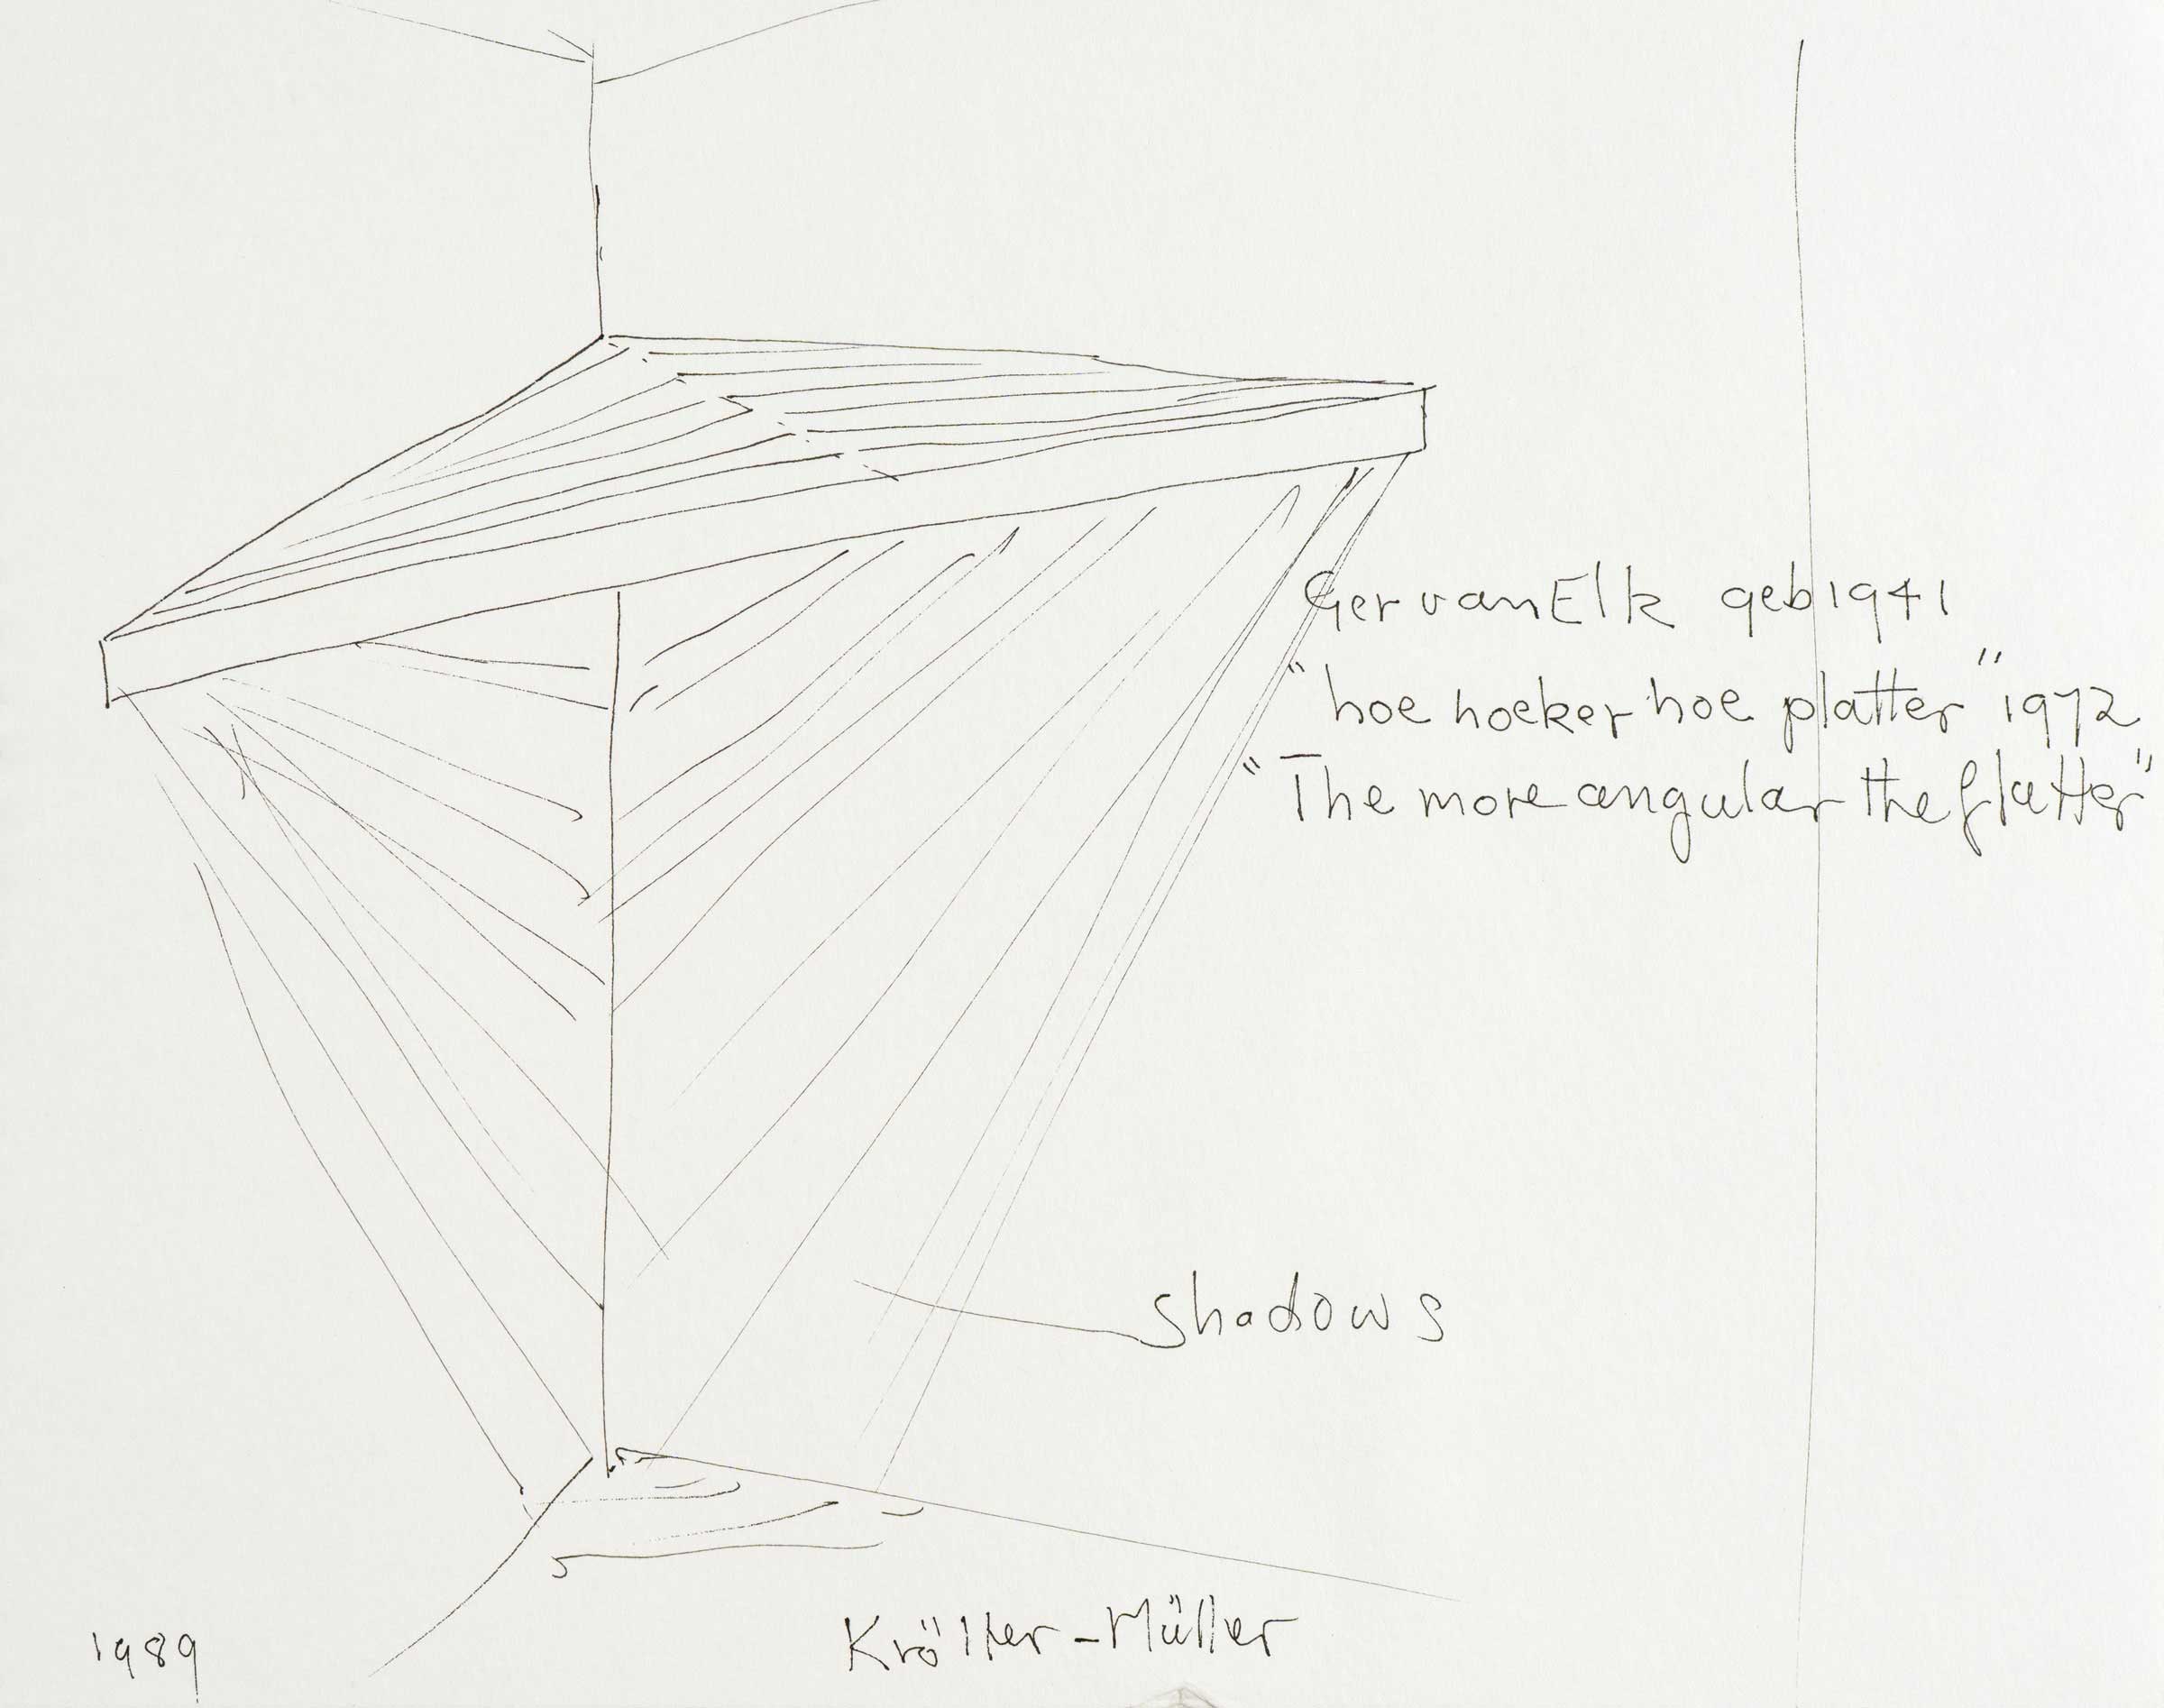 Ger van Elk geb 1941
"hoe hoeker hoe platter" 1972
"The more angular the flatter"
shadows
Kröller-Müller
1989